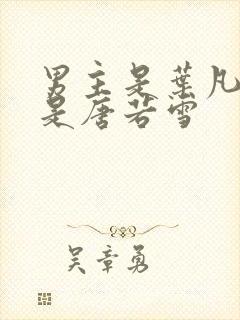 男主是葉凡
是唐若雪
吴章勇